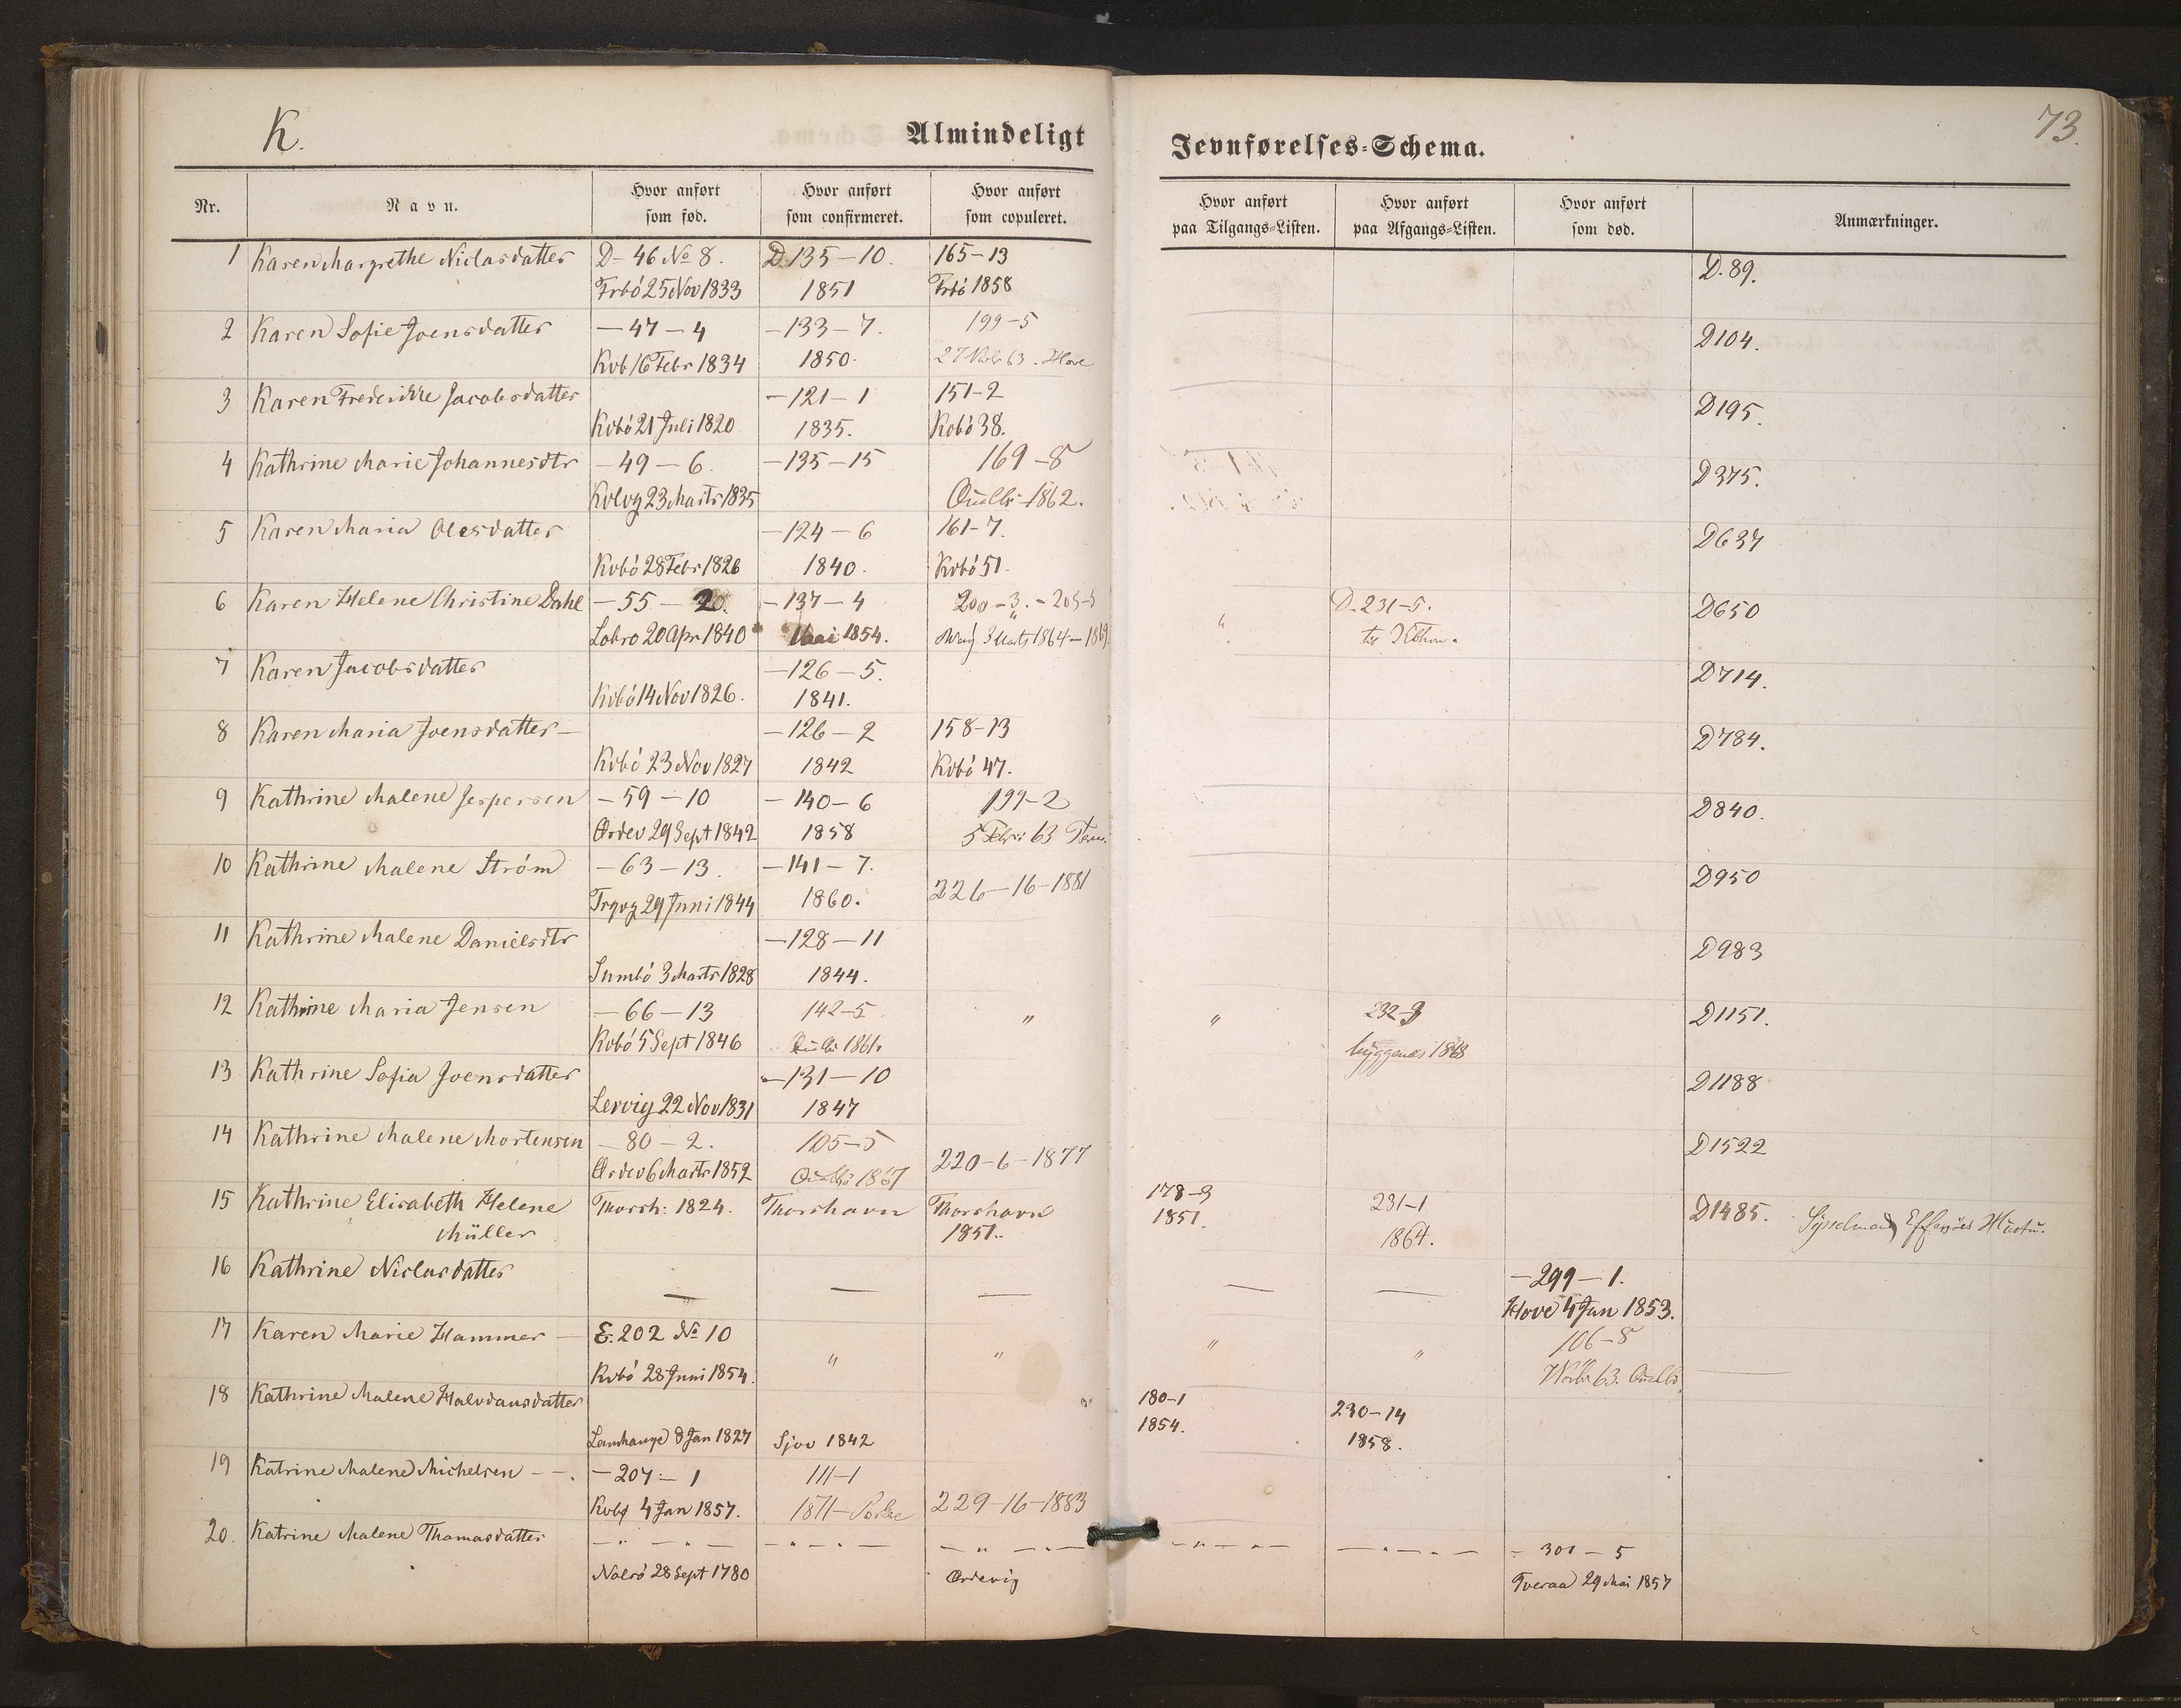 K.
Almindeligt
Jevnførelses-Schema.
73.
Nr.
Navn.
Hvor anført som fød.
Hvor anført som confirmeret.
Hvor anført som copuleret.
Hvor anført paa Tilgangs-Listen.
Hvor anført paa Afgangs-Listen.
Hvor anført som død.
Anmærkninger.
1 Karen Margrethe Niclasdatter D-46 No 8. D-135-10. 165-13 D.89.
Frbó 25 Nov 1833 1851 Frbó 1858
2 Karen Sofie Joensdatter -47-4 -133-7. 199-5 D104.
Kvb 16 Febr 1834 1850. 63. Hove
3 Karen Frederikke Jacobsdatter -121-1 151-2 D195.
Kvbó 21 Juli 1820 1835. Kvbó 38.
4 Kathrine Marie Johannesdtr -49-6. -135-15 169-8 D375.
Kvlvg 23 Marts 1835 Qualbö 1862.
5 Karen Maria Olesdatter -124-6 161-7. D637
Kvbó 28 Febr 1826 1840. Kvbó 51.
6 Karen Helene Christine Dahl -55-20. -137-4 200-3.-205-5 " D-231-5. D650
Lobro 20 Apr 1840 Mai 1854. 3 Marts 1864-1869. til Kbhvn.
7 Karen Jacobsdatter -126-5. D714.
Kvbó 14 Nov 1826. 1841.
8 Karen Maria Joensdatter- -126-2 158-13 D784.
Kvbó 23 Nov 1827 1842 Kvbó 47.
9 Kathrine Malene Jespersen -59-10 -140-6 199-2 D840.
Ordev 29 Sept 1842 1858 5 Febr 63
10 Kathrine Malene Ström -63-13. -141-7. D950
Trgvg 29 Juni 1844 1860. 226-16-1881
11 Kathrine Malene Danielsdtr -128-11 D983
Sumbó 3 Marts 1828 1844.
12 Kathrine Maria Jensen -66-13 142-5. " " 232-3 D1151.
Kvbó 5 Sept 1846 Qualbö 1861. 1868
13 Kathrine Sofia Joensdatter -131-10 D1188
Lervig 22 Nov 1831 1847
14 Kathrine Malene Mortensen -80-2. 105-5 D1522
Ordev 6 Marts 1852 Qualbö 1867 220-6-1877
15 Kathrine Elisabeth Helene Thorsh: 1824. Thorshavn Thorshavn 178-3 231-1 D1485. Sysselmand Effersöes Hustru.
Müller 1851. 1851. 1864.
16 Kathrine Niclasdatter - - - - - -299-1.
Hove 4 Jan 1853.
17 Karen Marie Hammer - E.202 No 10 " " " " 106-8
Kvbó 28 Juni 1854. 63. Qualbö
18 Kathrine Malene Halvdansdatter 180-1 230-14
Lamhauge 8 Jan 1827 Sjov 1842 1854. 1858.
19 Katrine Malene Michelsen - -. -207-1 111-1
Kvbø 4 Jan 1857. 1871-Porke 229-16-1883
20. Katrine Malene Thomasdatter -"-"- -"-"- -"- -"-"- -"-"- -301-5
Nolsö 28 Sept 1780 Ordevig Tveraa 29 Mai 1857